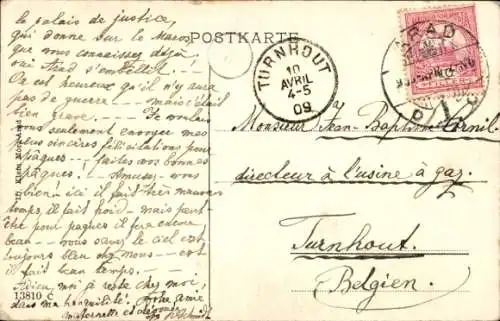 le palais de justice,
qui donne sur le Maros
que vous connaissez déjà,
oui Arad s'embellit.
On est heureux qu'il n'y aura
pas de guerre mais c'était
bien grave. Je voulais
vous seulement envoyer mes
plus sincères félicitations pour
Pâques faites vos bonnes
pâques! Amusez-vous
bien! ici il fait très mauvais
temps, il fait froid - mais peut
être pour pâques il fera encore
beau - vous savez le ciel est
toujours bleu chez nous - et
il fait beau temps.
Adieu, moi je reste chez moi,
dans ma tranquillité! votre amie
13810 C
POSTKARTE
TURNHOUT
10
AVRIL
4-5
09
ARAD
Monsieur Jean-Baptiste Cornil
directeur à l'usine à gaz.
Turnhout.
Belgien.